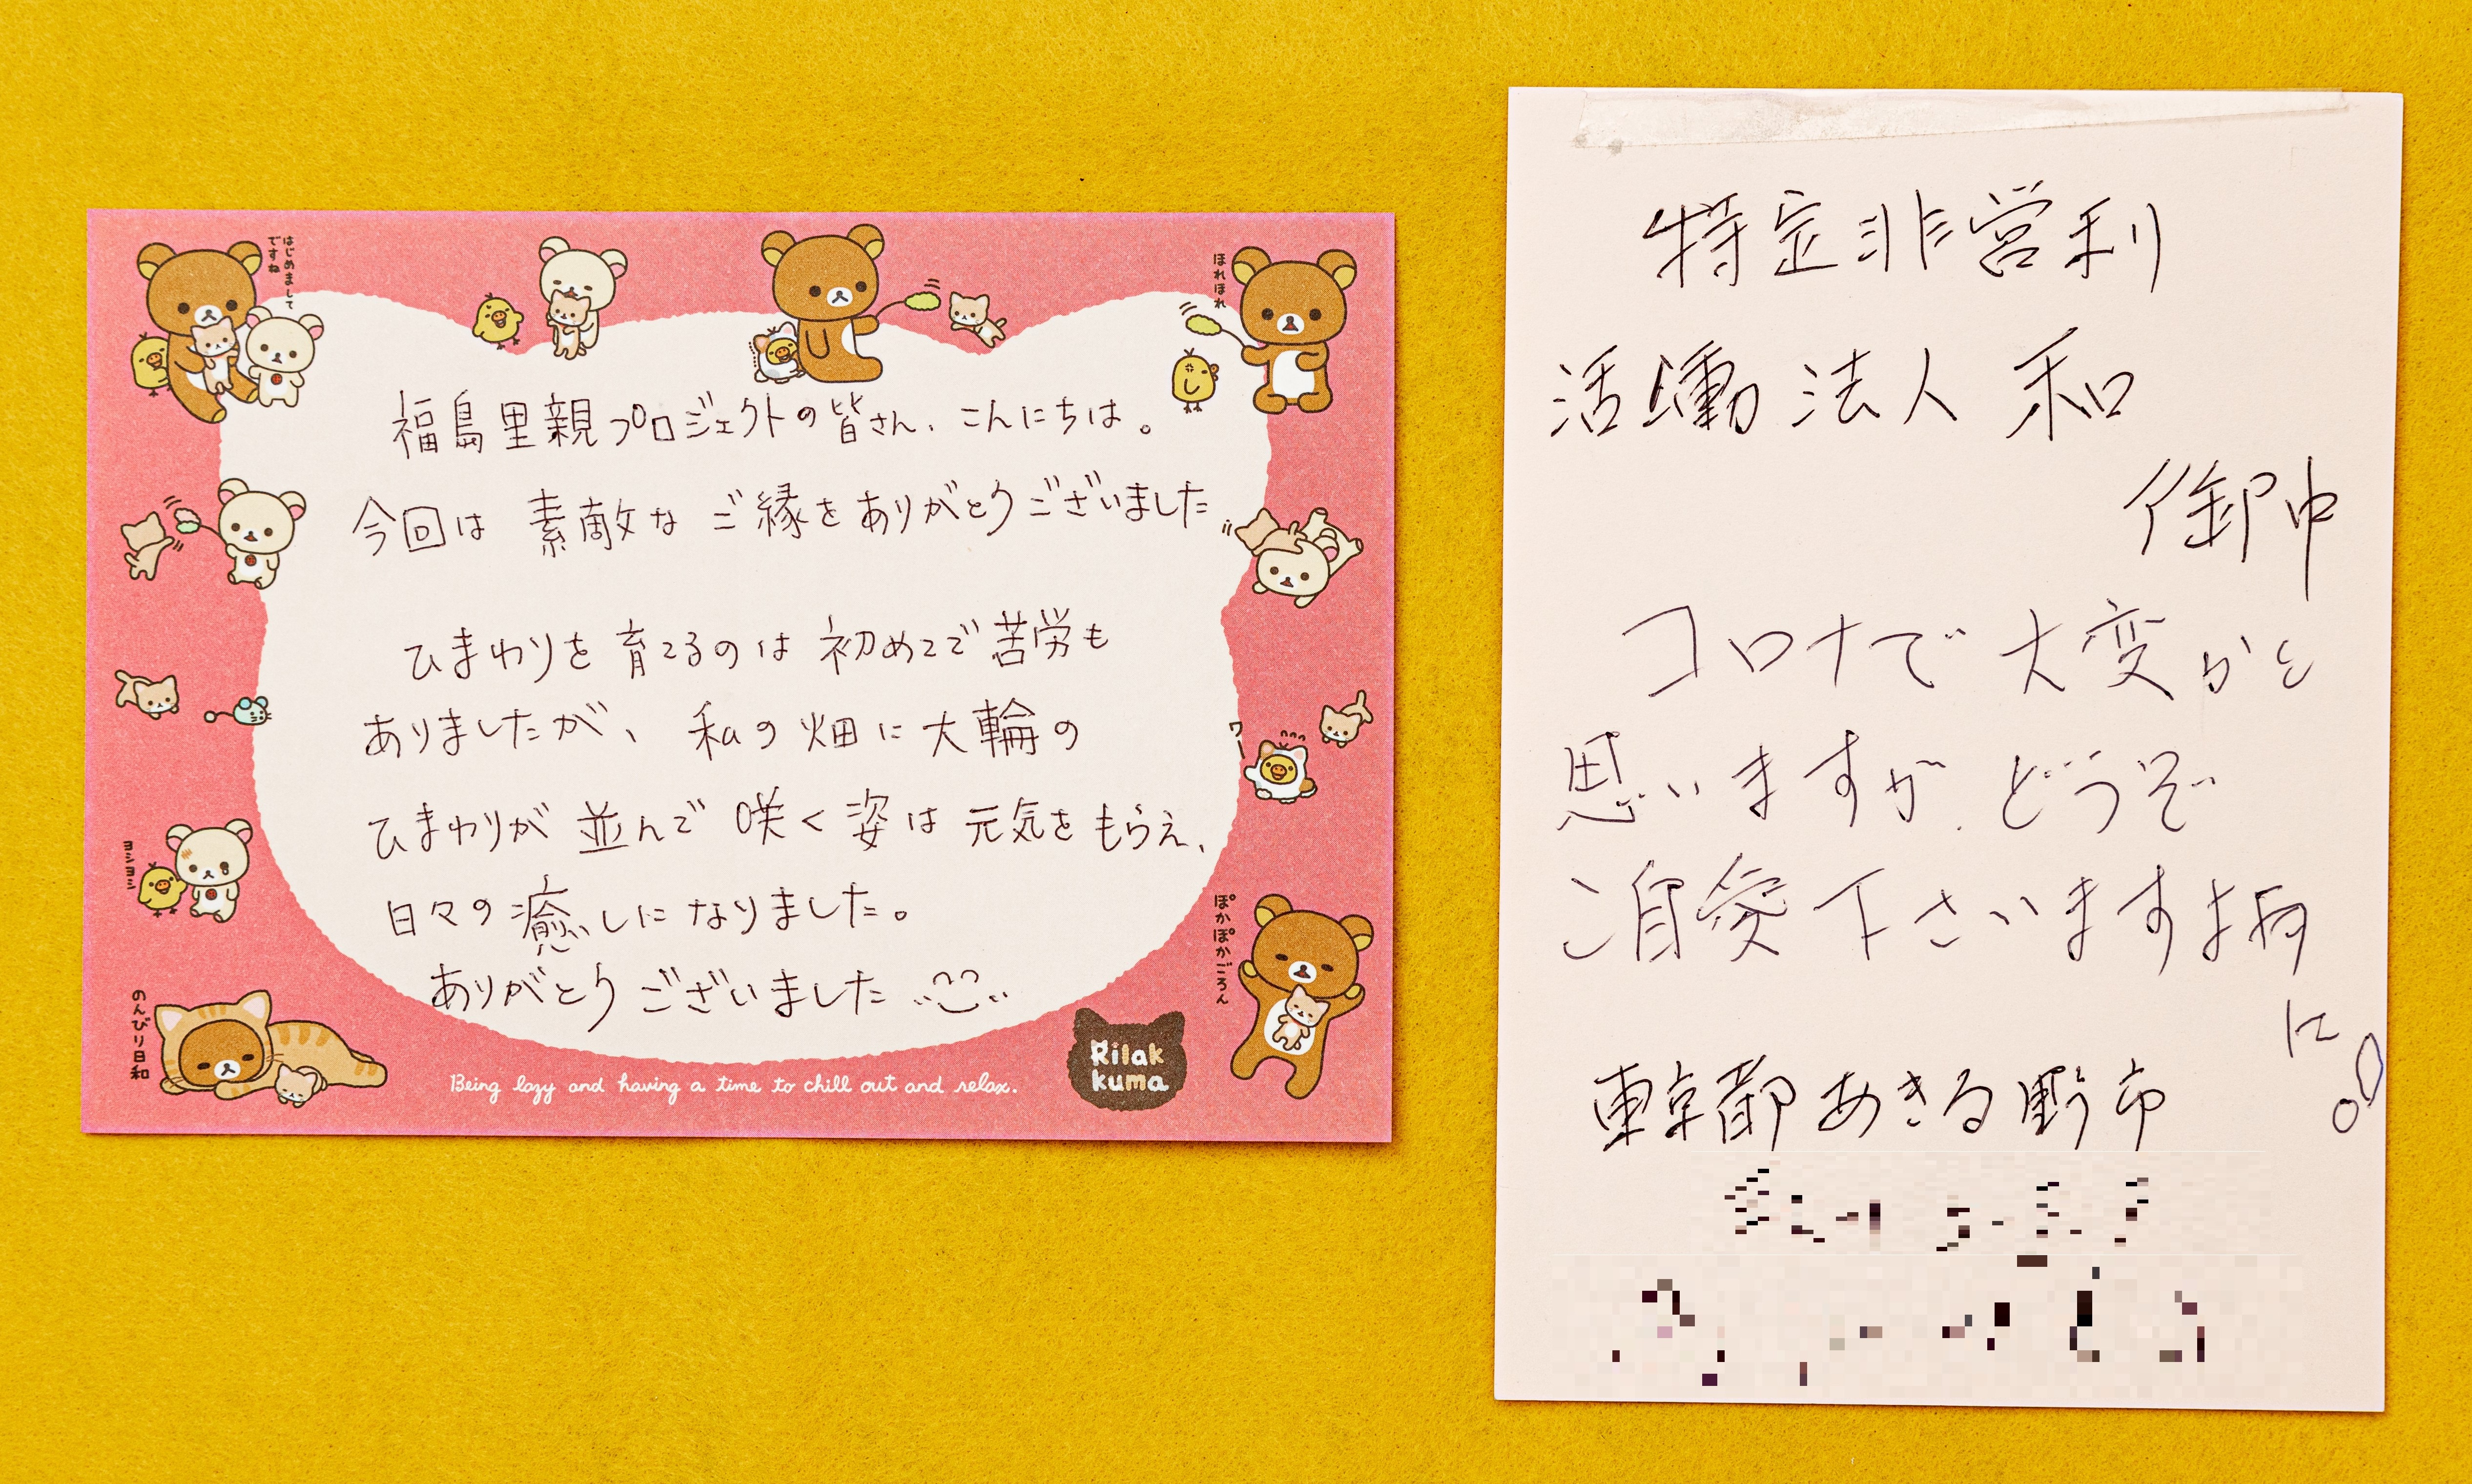 はじめまして
ですね
ほれほれ
福島里親プロジェクトの皆さん、こんにちは。
今回は 素敵な ご縁をありがとうございました。
ひまわりを 育てるのは 初めてで苦労も
ありましたが、私の畑に大輪の
ひまわりが 並んで 咲く姿は 元気をもらえ、
日々の癒しになりました。
ありがとうございました
ワー
ヨシヨシ
ぽかぽかごろん
のんびり日和
Rilak
kuma
Being lazy and having a time to chill out and relax.
特定非営利
活動法人 和
御中
コロナで大変かと
思いますが、どうぞ
ご自愛下さいます様
に。
東京都あきる野市